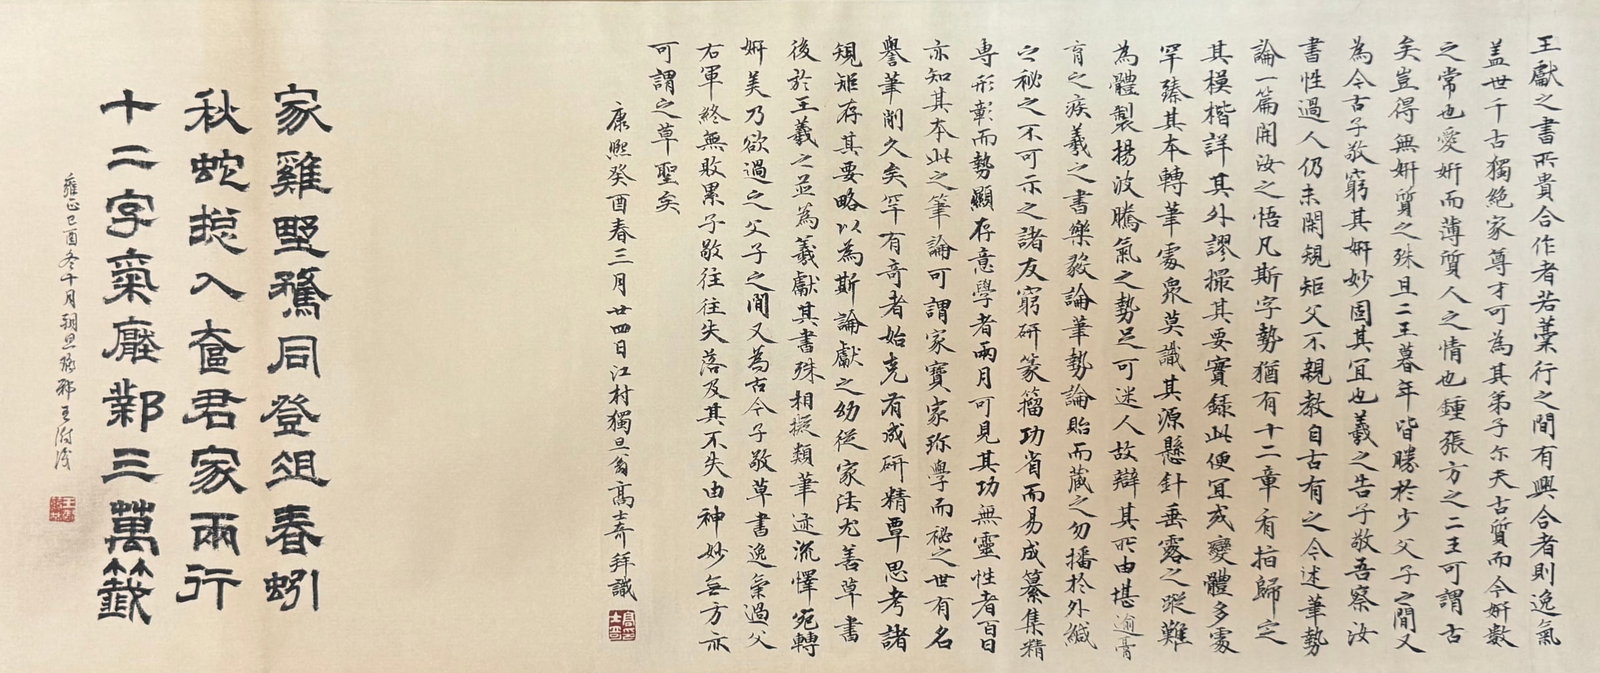 王獻之書所貴合作者若藁行之間有興合者則逸氣
盖世千古獨絕家尊才可為其弟子尔夫古質而今妍數
之常也愛妍而薄質人之情也鍾張方之二王可謂古
矣豈得無妍質之殊且二王暮年皆勝於少父子之間又
為今古子敬窮其妍妙固其冝也羲之告子敬吾察汝
書性過人仍未閑規矩父不親教自古有之今述筆勢
論一篇開汝之悟凡斯字勢猶有十二章有指歸定
其模楷詳其外謬撮其要實錄此便冝或變體多處
罕臻其本轉筆處眾莫識其源懸針垂露之蹤難
為體製揚波騰氣之勢足可迷人故辯其所由堪逾膏
肓之疾羲之書樂毅論筆勢論貽而藏之勿播於外緘
之秘之不可示之諸友窮研篆籀功省而易成纂集精
專形彰而勢顯存意學者兩月可見其功無靈性者百日
亦知其本此之筆論可謂家寶家珎學而秘之世有名
譽筆削久矣罕有奇者始克有成研精覃思考諸
規矩存其要略以為斯論獻之幼從家法尤善草書
後於王羲之並為羲獻其書殊相擬類筆迹流懌宛轉
妍美乃欲過之父子之間又為古今子敬草書逸氣過父
右軍終無敗累子敬往往失落及其不失由神妙無方亦
可謂之草聖矣
康熙癸酉春三月廿四日江村獨旦翁高士奇拜識
家雞野鶩同登俎春蚓
秋蛇揔入奩君家兩行
十二字氣壓鄴三萬籤
雍正己酉冬十月朔旦琅邪王澍識